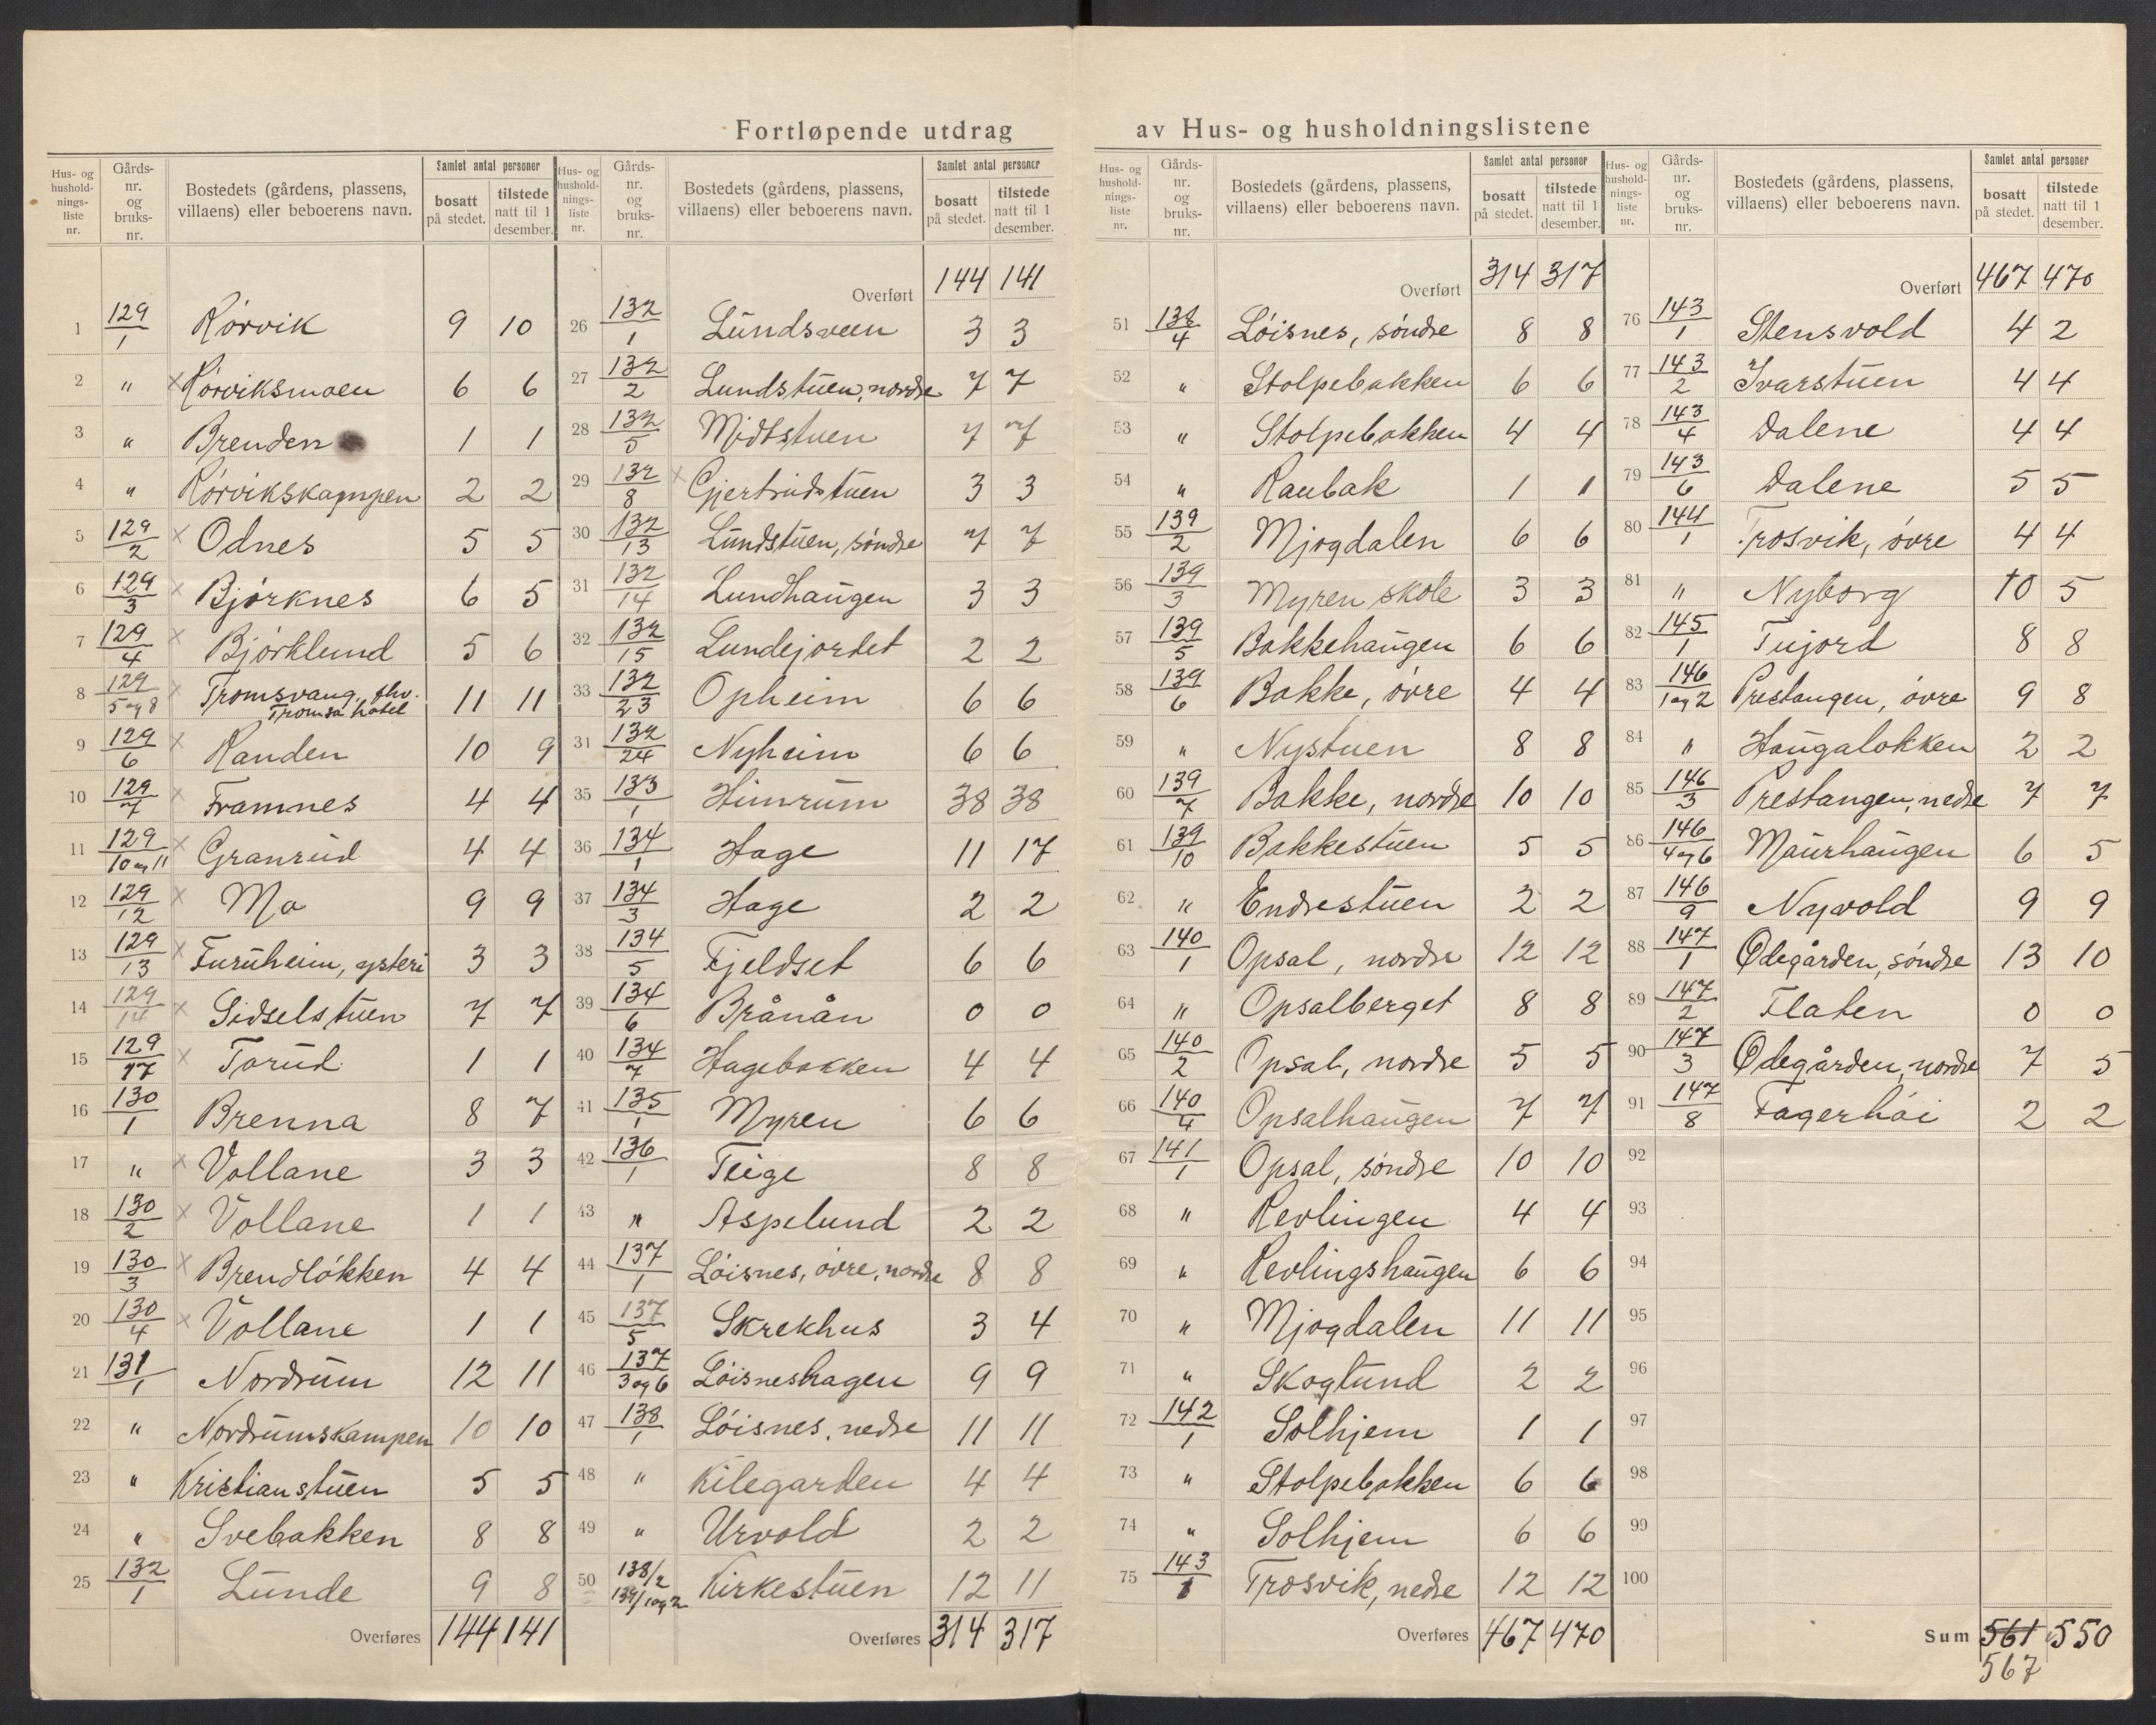 Fortløpende utdrag av Hus- og husholdningslistene
Hus- og hushold-nings-liste nr. | Gårds-nr. og bruks-nr. | Bostedets (gårdens, plassens, villaens) eller beboerens navn. | Samlet antal personer | bosatt på stedet. | tilstede natt til 1 desember.
1 129/1 Rørvik 9 10
2 " × Rørviksmoen 6 6
3 " Brenden 1 1
4 " Rørvikskampen 2 2
5 129/2 × Odnes 5 5
6 129/3 × Bjørknes 6 5
7 129/4 × Bjørklund 5 6
8 129/5 og 8 × Tromsvang, fhv. Tromsa hotel 11 11
9 129/6 × Randen 10 9
10 129/7 × Framnes 4 4
11 129/10 og 11 × Granrud 4 4
12 129/12 × Mo 9 9
13 129/13 × Furuheim, ysteri 3 3
14 129/14 × Sidselstuen 7 7
15 129/17 × Torud 1 1
16 130/1 Brenna 8 7
17 " × Vollane 3 3
18 130/2 × Vollane 1 1
19 130/3 × Brendløkken 4 4
20 130/4 × Vollane 1 1
21 131/1 Nordrum 12 11
22 " Nordrumskampen 10 10
23 " Kristianstuen 5 5
24 " Svebakken 8 8
25 132/1 Lunde 9 8
Overføres 144 141
Hus- og hushold-nings-liste nr. | Gårds-nr. og bruks-nr. | Bostedets (gårdens, plassens, villaens) eller beboerens navn. | Samlet antal personer | bosatt på stedet. | tilstede natt til 1 desember.
Overført 144 141
26 132/1 Lundsveen 3 3
27 132/2 Lundstuen, nordre 7 7
28 132/5 Midtstuen 7 7
29 132/8 × Gjertrudstuen 3 3
30 132/13 Lundstuen, søndre 7 7
31 132/14 Lundhaugen 3 3
32 132/15 Lundejordet 2 2
33 132/23 Opheim 6 6
31 132/24 Nyheim 6 6
35 133/1 Himrum 38 38
36 134/1 Hage 11 17
37 134/3 Hage 2 2
38 134/5 Fjeldset 6 6
39 134/6 Brånån 0 0
40 134/7 Hagebakken 4 4
41 135/1 Myren 6 6
42 136/1 Teige 8 8
43 " Aspelund 2 2
44 137/1 Løisnes, øvre, nordre 8 8
45 137/5 Skrekhus 3 4
46 137/3 og 6 Løisneshagen 9 9
47 138/1 Løisnes, nedre 11 11
48 " Kilegarden 4 4
49 " Urvold 2 2
50 138/2 139/1 og 2 Kirkestuen 12 11
Overføres 314 317
Hus- og hushold-nings-liste nr. | Gårds-nr. og bruks-nr. | Bostedets (gårdens, plassens, villaens) eller beboerens navn. | Samlet antal personer | bosatt på stedet. | tilstede natt til 1 desember.
Overført 314 317
51 138/4 Løisnes, søndre 8 8
52 " Stolpebakken 6 6
53 " Stolpebakken 4 4
54 " Raubak 1 1
55 139/2 Mjogdalen 6 6
56 139/3 Myren skole 3 3
57 139/5 Bakkehaugen 6 6
58 139/6 Bakke, øvre 4 4
59 " Nystuen 8 8
60 139/7 Bakke, nordre 10 10
61 139/10 Bakkestuen 5 5
62 " Endrestuen 2 2
63 140/1 Opsal, nordre 12 12
64 " Opsalberget 8 8
65 140/2 Opsal, nordre 5 5
66 140/4 Opsalhaugen 7 7
67 141/1 Opsal, søndre 10 10
68 " Revlingen 4 4
69 " Revlingshaugen 6 6
70 " Mjogdalen 11 11
71 " Skoglund 2 2
72 142/1 Solhjem 1 1
73 " Stolpebakken 6 6
74 " Solhjem 6 6
75 143/1 Trosvik, nedre 12 12
Overføres 467 470
Hus- og hushold-nings-liste nr. | Gårds-nr. og bruks-nr. | Bostedets (gårdens, plassens, villaens) eller beboerens navn. | Samlet antal personer | bosatt på stedet. | tilstede natt til 1 desember.
Overført 467 470
76 143/1 Stensvold 4 2
77 143/2 Ivarstuen 4 4
78 143/4 Dalene 4 4
79 143/6 Dalene 5 5
80 144/1 Trosvik, øvre 4 4
81 " Nyborg 10 5
82 145/1 Tujord 8 8
83 146/1 og 2 Prestangen, øvre 9 8
84 " Haugaløkken 2 2
85 146/3 Prestangen, nedre 7 7
86 146/4 og 6 Maurhaugen 6 5
87 146/9 Nyvold 9 9
88 147/1 Ødegården, søndre 13 10
89 147/2 Flaten 0 0
90 147/3 Ødegården, nordre 7 5
91 147/8 Fagerhøi 2 2
92
93
94
95
96
97
98
99
100
Sum 561 550
567